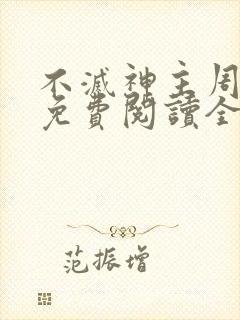 不滅神主周
免費閱讀全
范振增